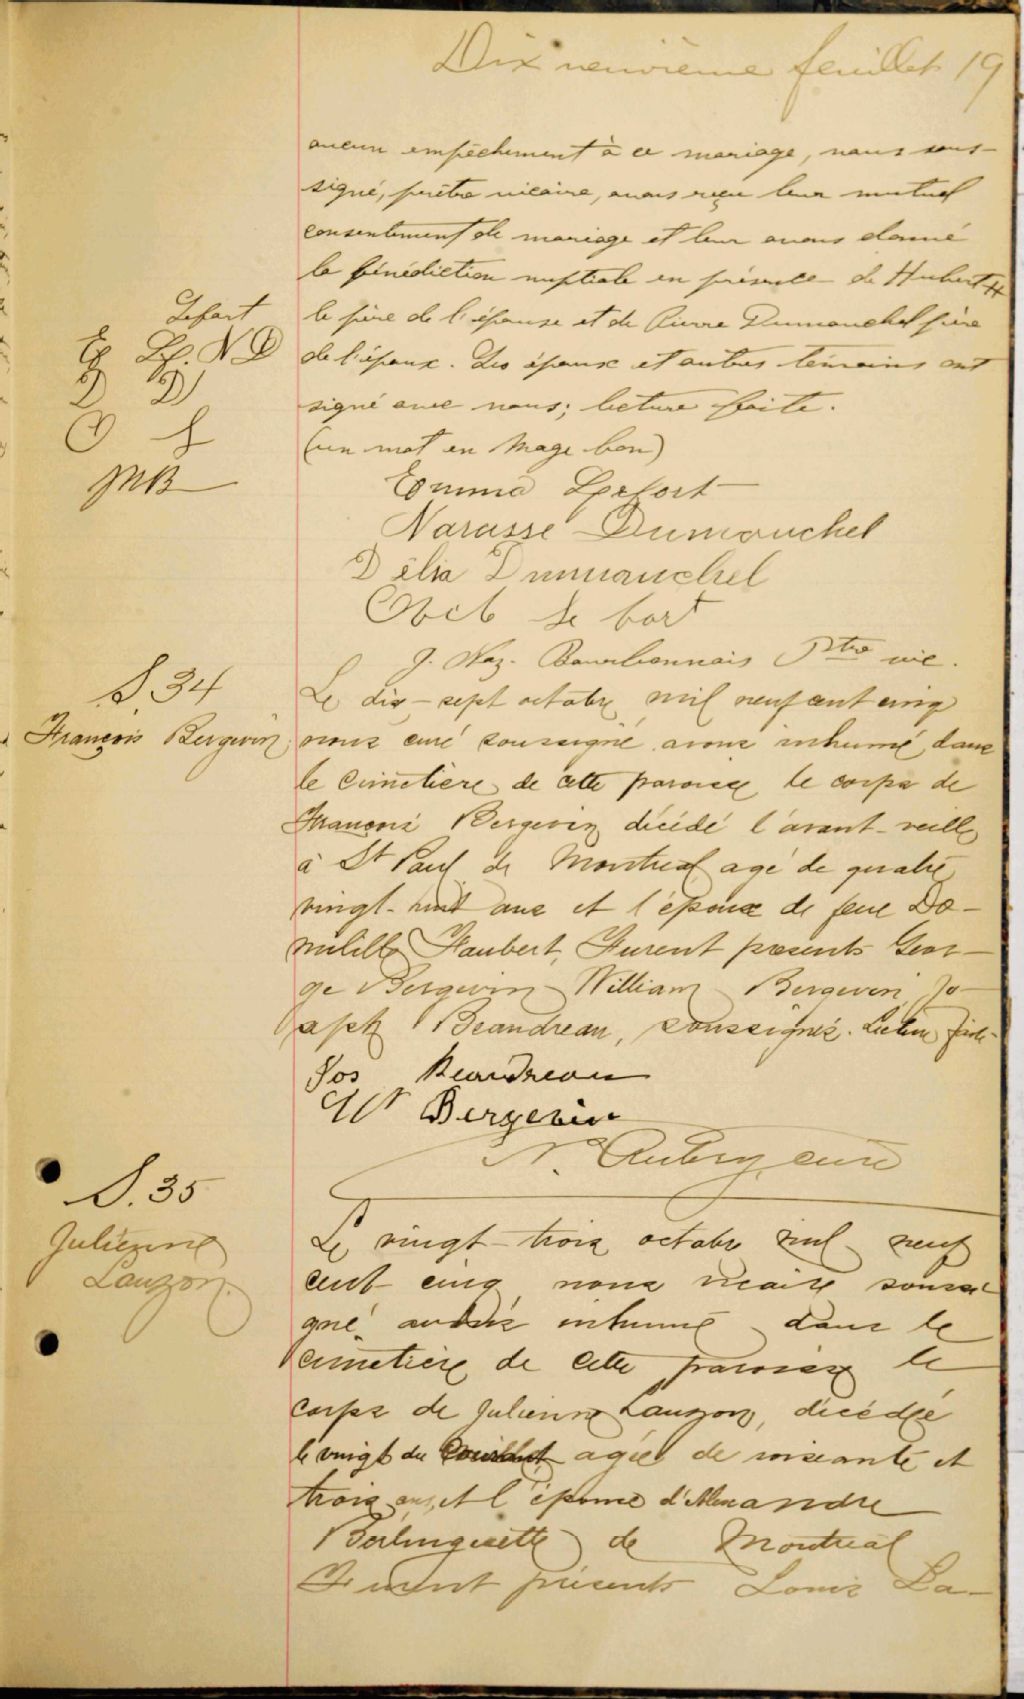 Dix neuvième feuillet 19
aucun empêchement à ce mariage, nous sous-
signé, prêtre vicaire, avons reçu leur mutuel
consentement de mariage et leur avons donné
la bénédiction nuptiale en présence de Hubert #
Lefort
le père de l'épouse et de Pierre Dumouchel père
E L. N D
D D
de l'époux. Les époux et autres témoins ont
signé avec nous; lecture faite.
O L
(un mot en marge bon)
JNB
Emma Lefort
Narcisse Dumouchel
Délia Dumouchel
Le fort
J. Naz. Bourbonnais Ptre vic.
S. 34
François Bergevin
Le dix-sept octobre mil neuf cent cinq
nous curé soussigné avons inhumé dans
le cimetière de cette paroisse le corps de
François Bergevin décédé l'avant-veille
à St Paul de Montréal agé de quatre
vingt-huit ans et l'époux de feue Do-
mitille Faubert, Furent présents Geor-
ge Bergevin William Bergevin, Jo-
seph Beaudreau, soussignés. Lecture faite
Jos Beaudreau
Wm Bergevin
N. Aubry, curé
S. 35
Julienne
Lauzon.
Le vingt-trois octobre mil neuf
cent cinq nous vicaire soussi-
gné avons inhumé dans le
cimetière de cette paroisse le
corps de Julienne Lauzon, décédée
le vingt du courant agée de soixante et
trois ans, et l'épouse d'Alexandre
Berlinguette de Montréal
Furent présents Louis La-